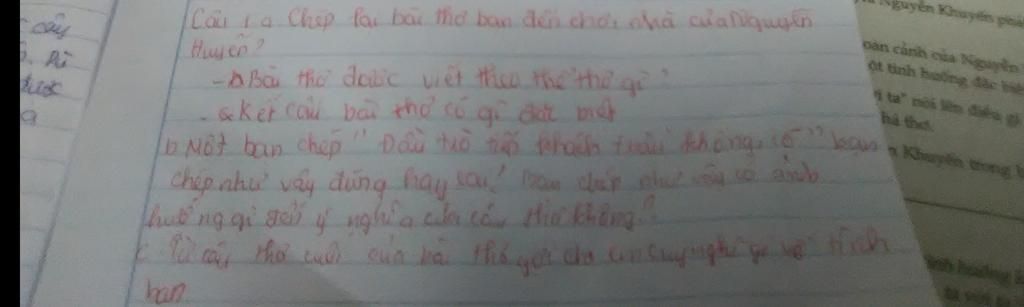 câu
Câu 1 a Chép lại bài thơ bạn đến chơi nhà của Nguyễn
Huyến?
- Bài thơ được viết theo thể thơ gì?
- Kết cấu bài thơ có gì đặt biệt
b Một bạn chép " Đầu trò tiếp khách trầu không có" bạn
chép như vậy đúng hay sai? bạn chép như vậy có ảnh
hưởng gì ý nghĩa của câu thơ không?
c. Từ câu thơ cuối của bài thơ gợi cho em suy nghĩ gì về tình
bạn
Nguyễn Khuyến phải
oàn cảnh của Nguyễn
ột tình huống đặc biệt
ta" nói lên điều gì
hà thơ.
Khuyến trong
ình huống